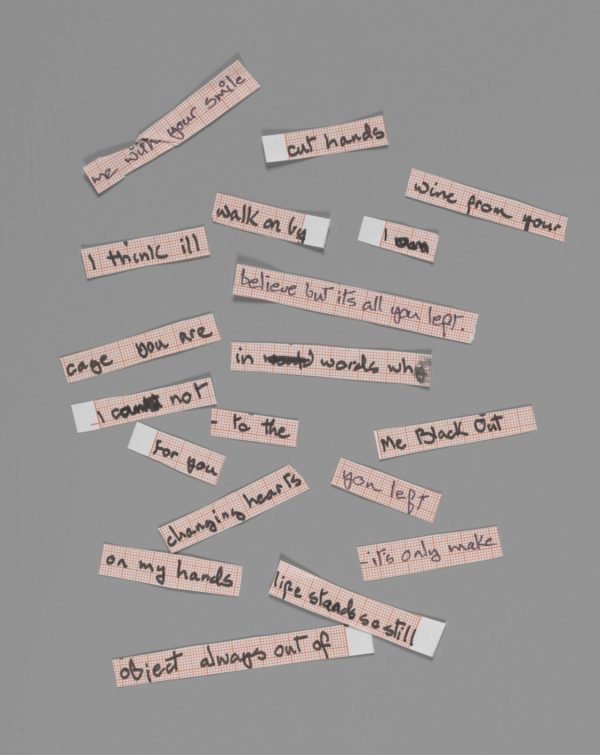 me with your smile
cut hands
wine from your
walk on by
I
I think ill
believe but its all you left.
cage you are
in words
I not
- to the
Me Black Out
For you
you left
changing hearts
-it's only make
on my hands
life stands so still
object always out of